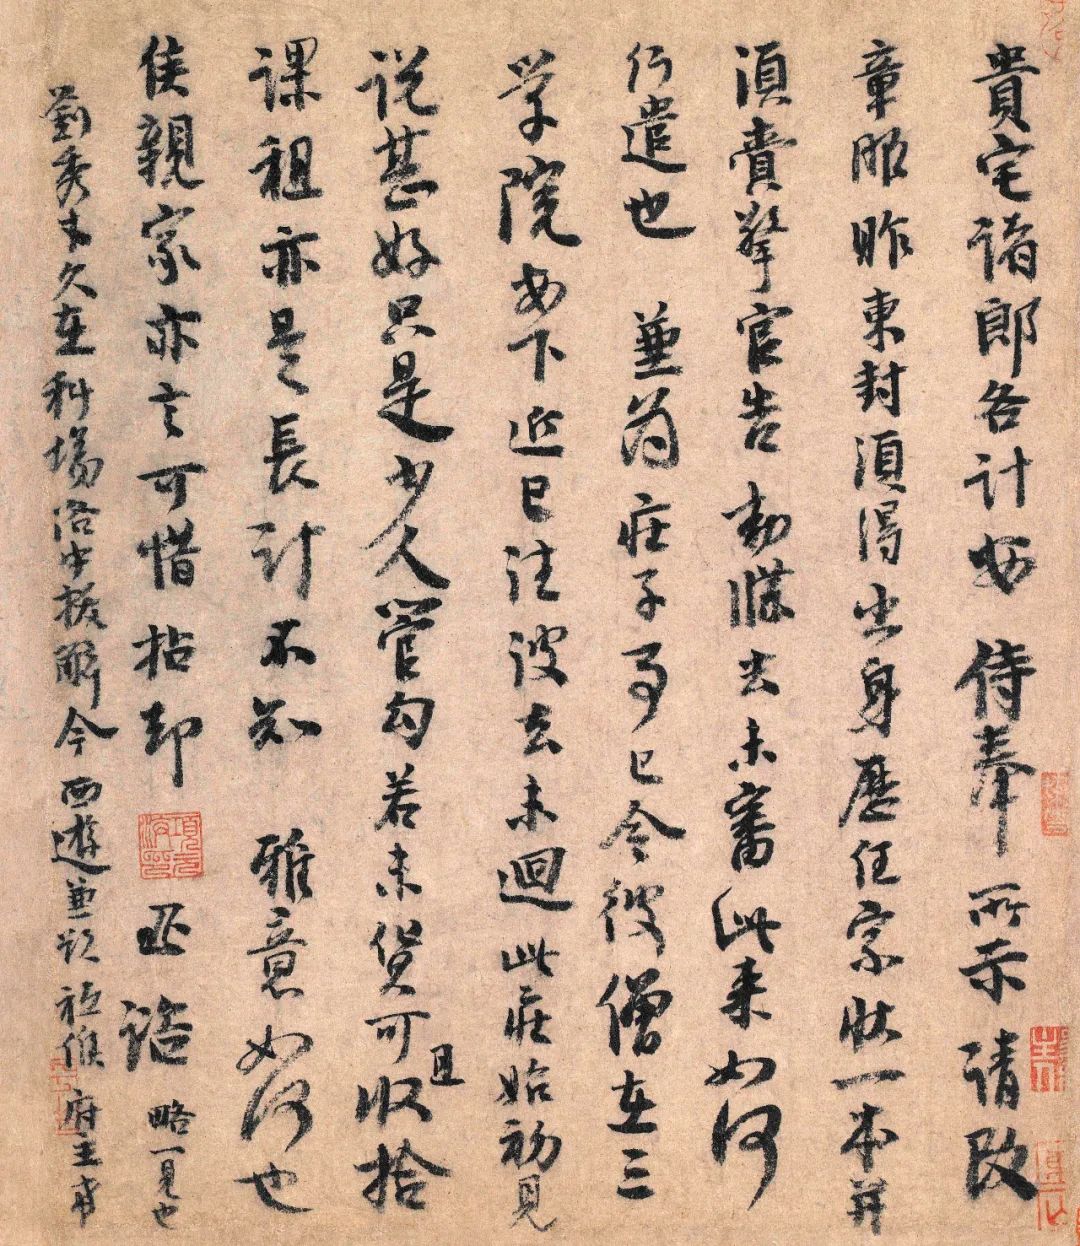 貴宅諸郎各计安侍奉所示請改
章服昨東封須得出身歷任家狀一本并
須賫擎官告勅牒去未審此來如何
行遣也兼為莊子事已令彼僧在三
学院安下近已往彼去未迴此莊始初見
説甚好只是少人管勾若未貨且可收拾
課租亦是長計不知雅意如何也
侯親家亦言可惜拈却 諮 略一見也
劉秀才久在科場洛中拔解今西遊兼欲祗候府主希